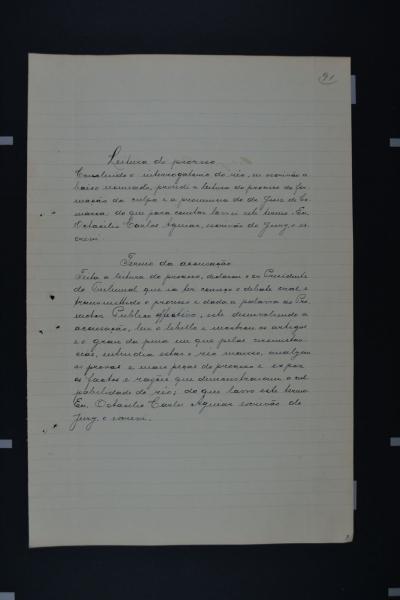 91
Leitura do processo
Concluido o interrogatorio do réo, eu escrivão a
baixo nomeado, procedi a leitura do processo da for
mação da culpa e a pronuncia do dr Juiz da Co
marca: do que para constar lavrei este termo. Eu,
Octavilio Carlos Aguiar, escrivão do Jury, o es
crevi.
Termo da accusação
Feita a leitura do processo, declarou o sr Presidente
do Tribunal que ia ter começo o debate oral e
transmittindo o processo e dada a palavra ao Pro
motor Publico effectivo, este desenvolvendo a
accusação, leu o libello e mostrou os artigos
e o grau da pena em que pelas circumstan
cias, entendia estar o réo incurso, analysou
as provas e mais peças do processo e expoz
os factos e rações que demonstraram a cul
pabilidade do réo; do que lavro este termo
Eu, Octavilio Carlos Aguiar escrivão do
Jury, o escrevi.